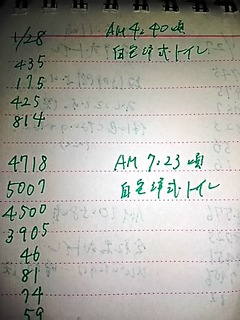 1/28 AM 4,40頃
435 自宅洋式トイレ
175
425
814
4718 AM 7.23頃
5007 自宅洋式トイレ
4500
3905
46
81
74
59